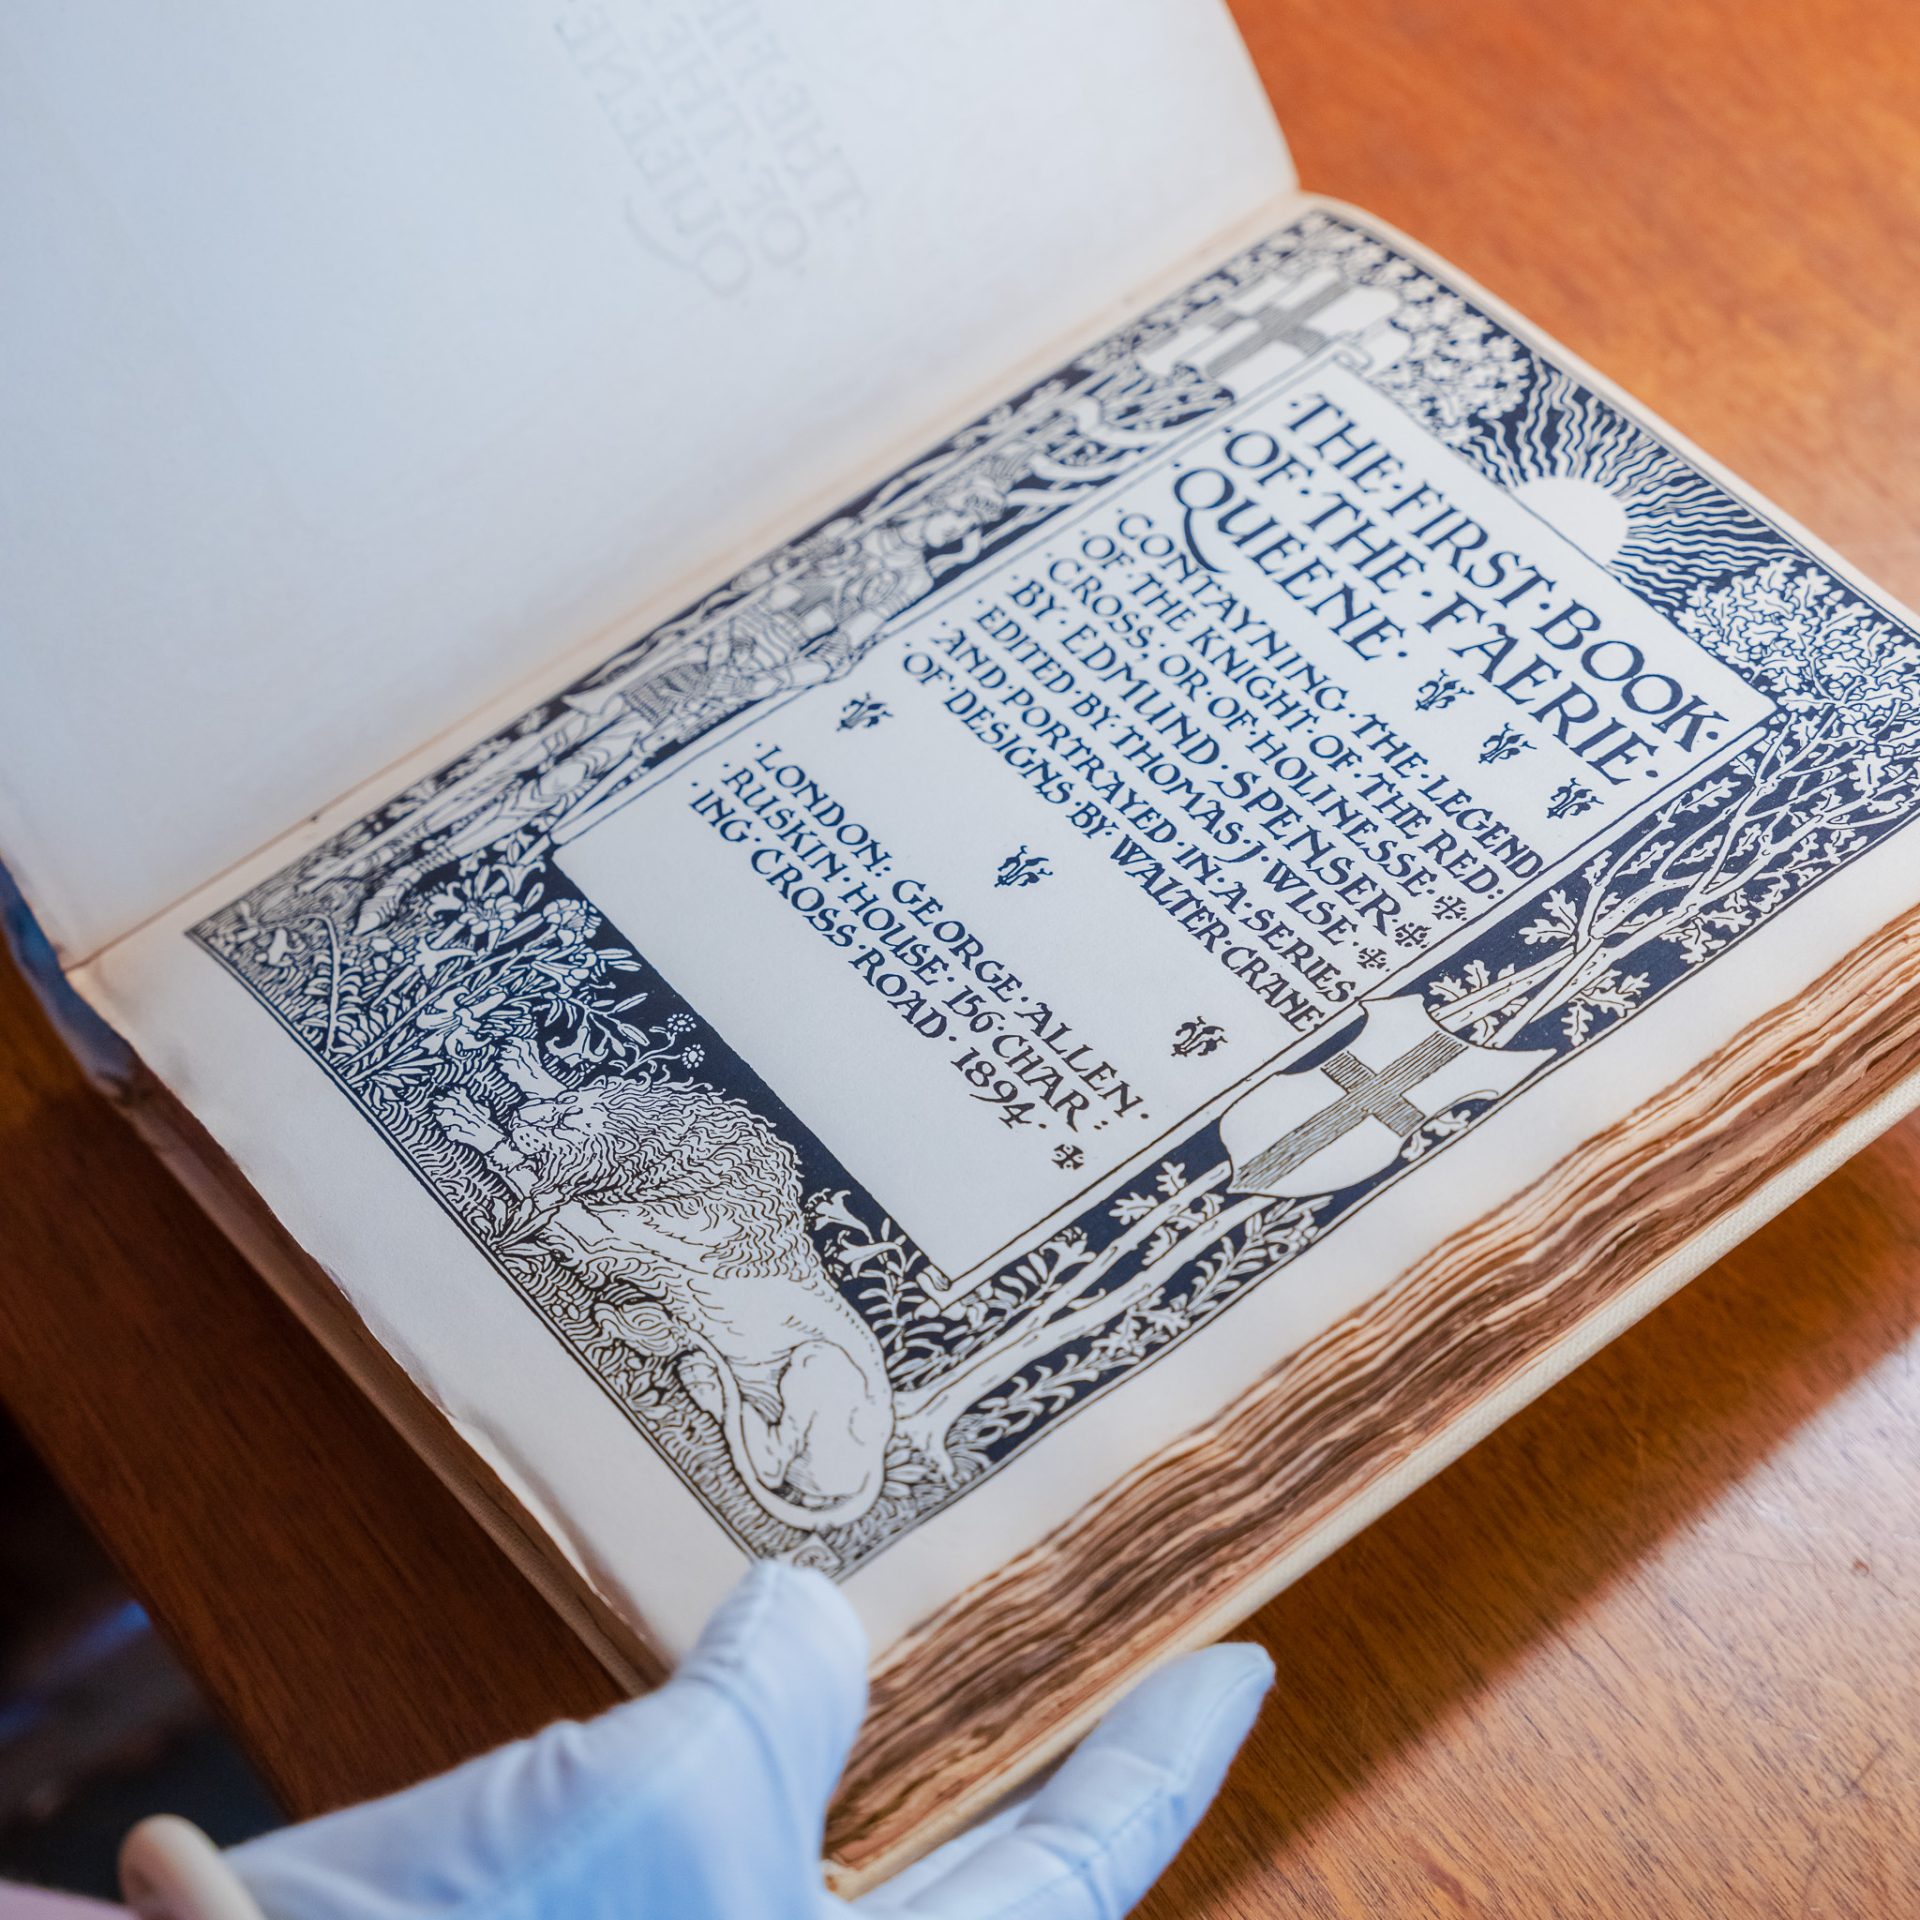 ·THE·FIRST·BOOK·
·OF·THE·FAERIE·
·QUEENE·
·CONTAYNING·THE·LEGEND
OF·THE KNIGHT·OF·THE RED:
CROSS, OR·OF·HOLINESSE·
BY·EDMUND·SPENSER·
·EDITED·BY·THOMAS·J·WISE·
·AND·PORTRAYED·IN·A·SERIES
·OF·DESIGNS·BY·WALTER·CRANE·
·LONDON: GEORGE·ALLEN·
·RUSKIN·HOUSE·156·CHAR:
·ING·CROSS·ROAD·1894·